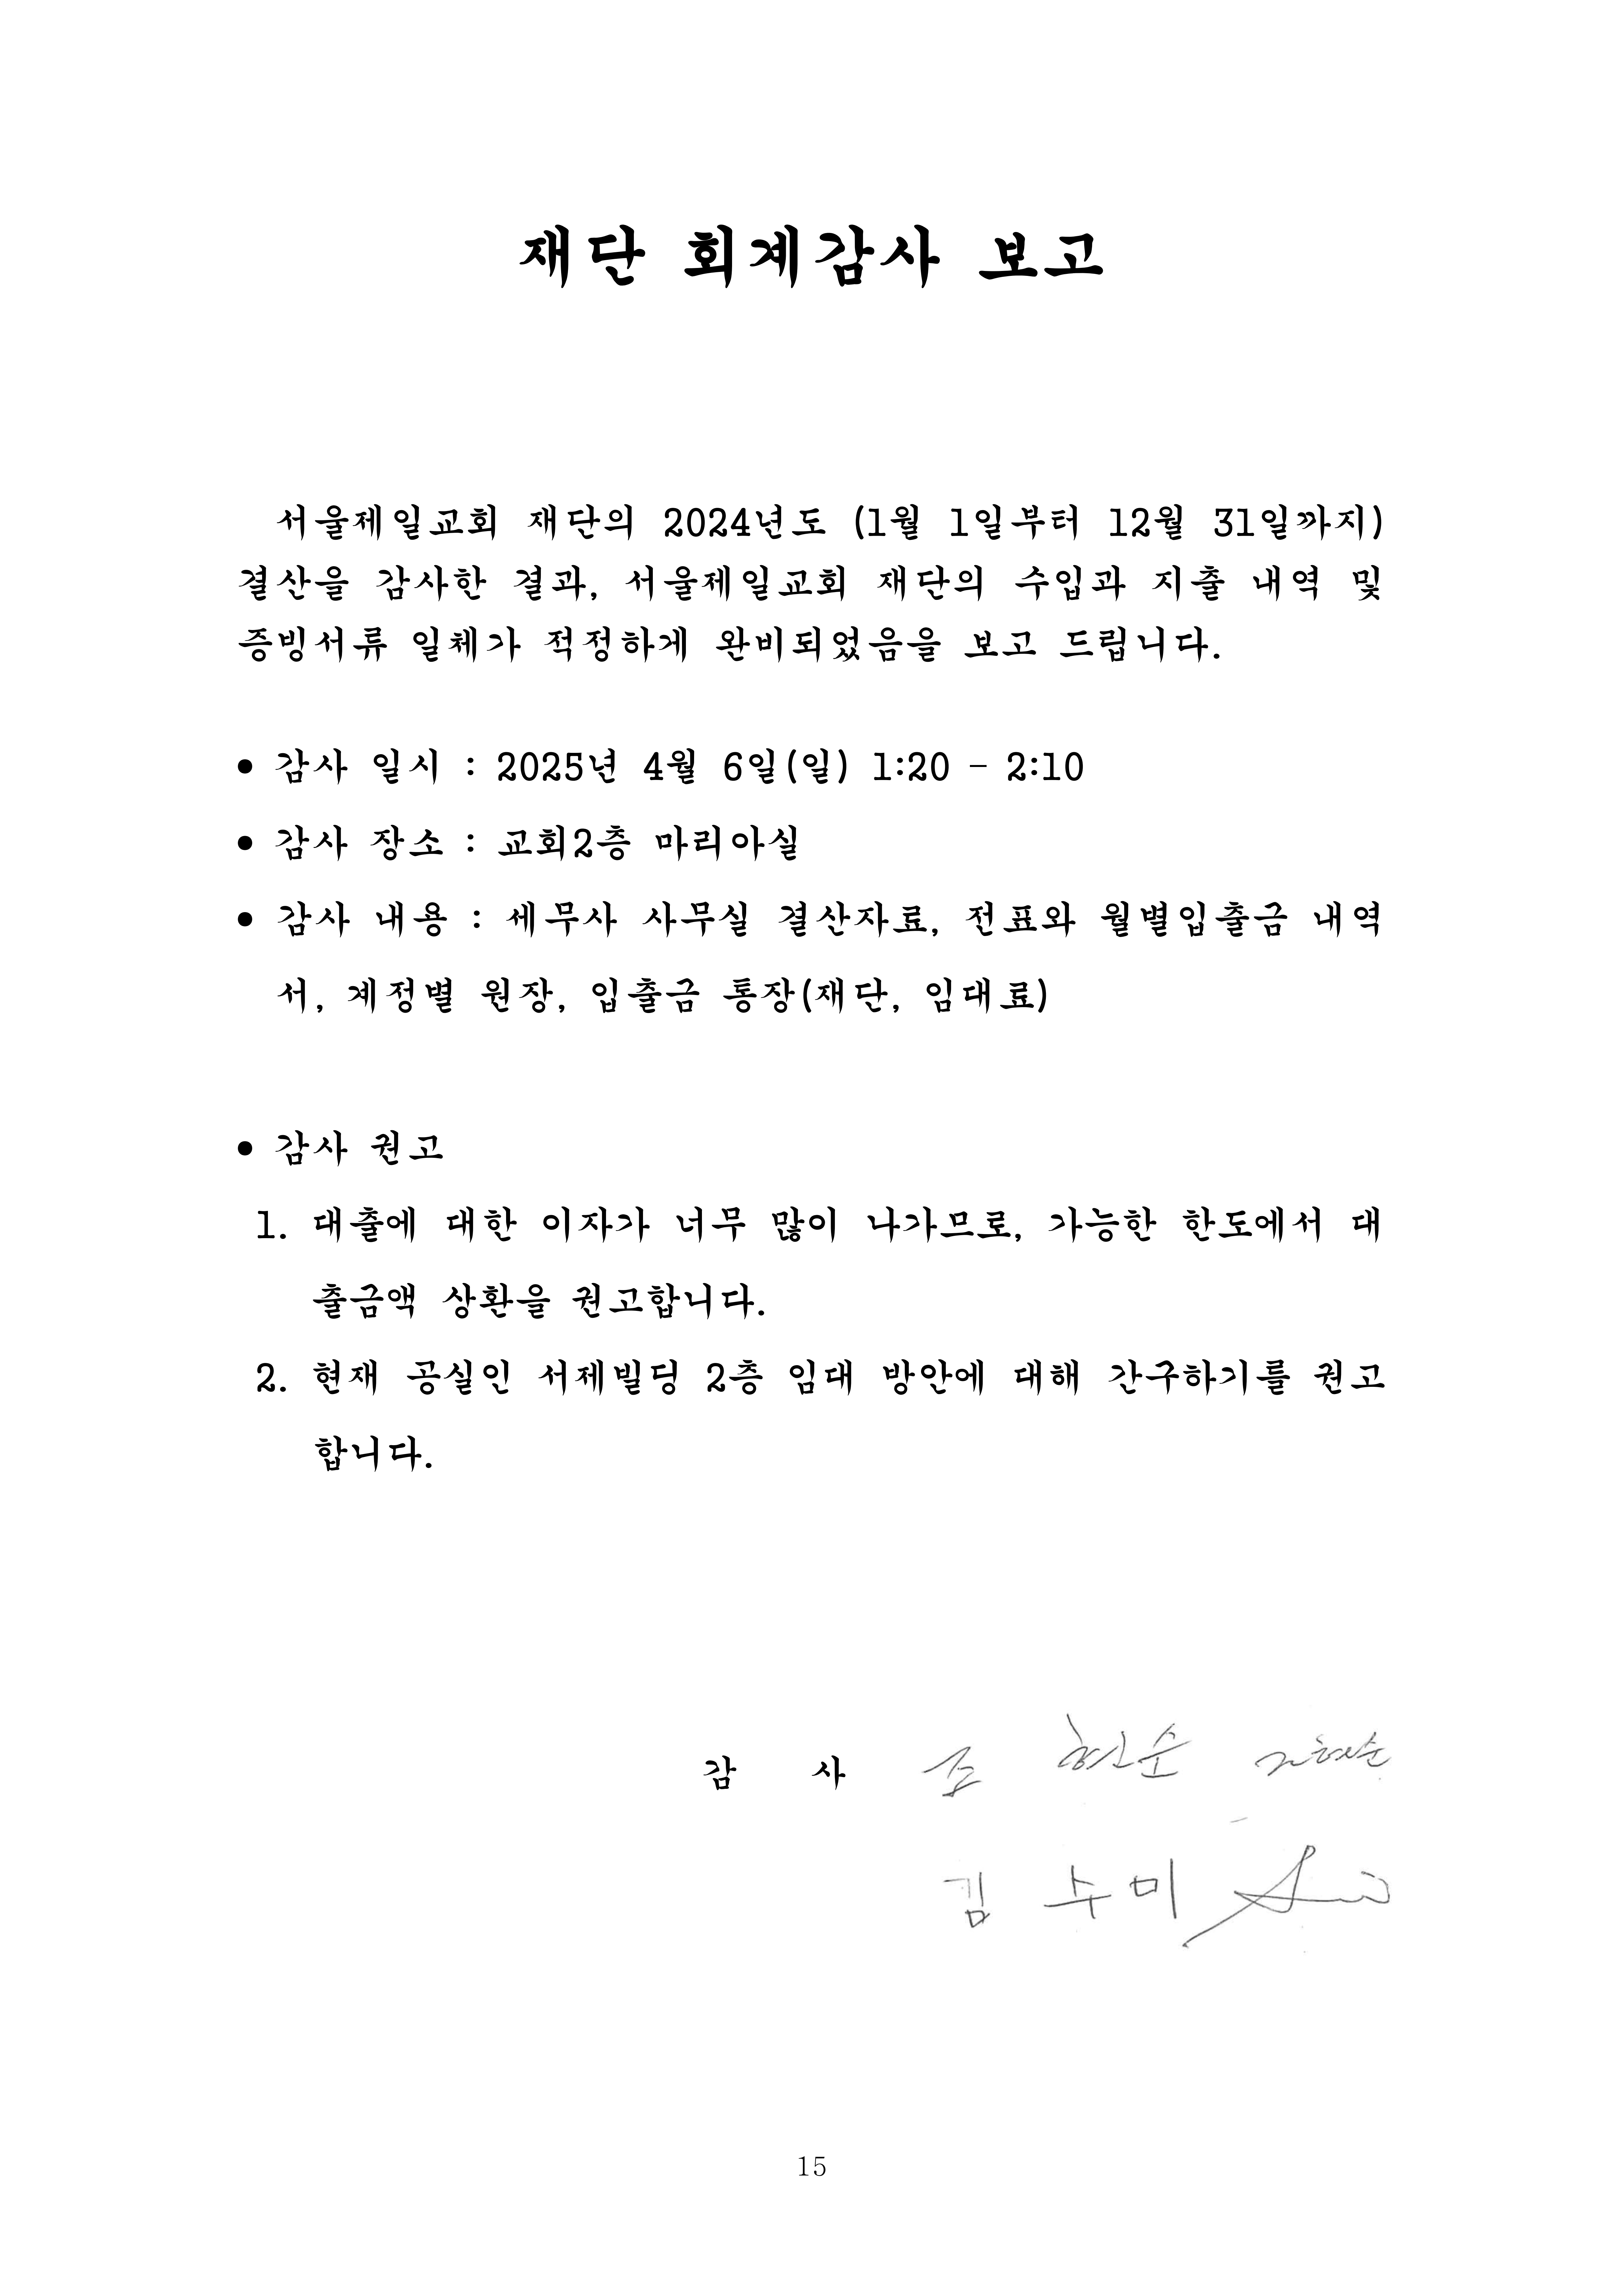 재단 회계감사 보고
서울제일교회 재단의 2024년도 (1월 1일부터 12월 31일까지)
결산을 감사한 결과, 서울제일교회 재단의 수입과 지출 내역 및
증빙서류 일체가 적정하게 완비되었음을 보고 드립니다.
• 감사 일시 : 2025년 4월 6일(일) 1:20 - 2:10
• 감사 장소 : 교회2층 마리아실
• 감사 내용 : 세무사 사무실 결산자료, 전표와 월별입출금 내역
서, 계정별 원장, 입출금 통장(재단, 임대료)
• 감사 권고
1. 대출에 대한 이자가 너무 많이 나가므로, 가능한 한도에서 대
출금액 상환을 권고합니다.
2. 현재 공실인 서제빌딩 2층 임대 방안에 대해 간구하기를 권고
합니다.
감 사 조
김 수미
15